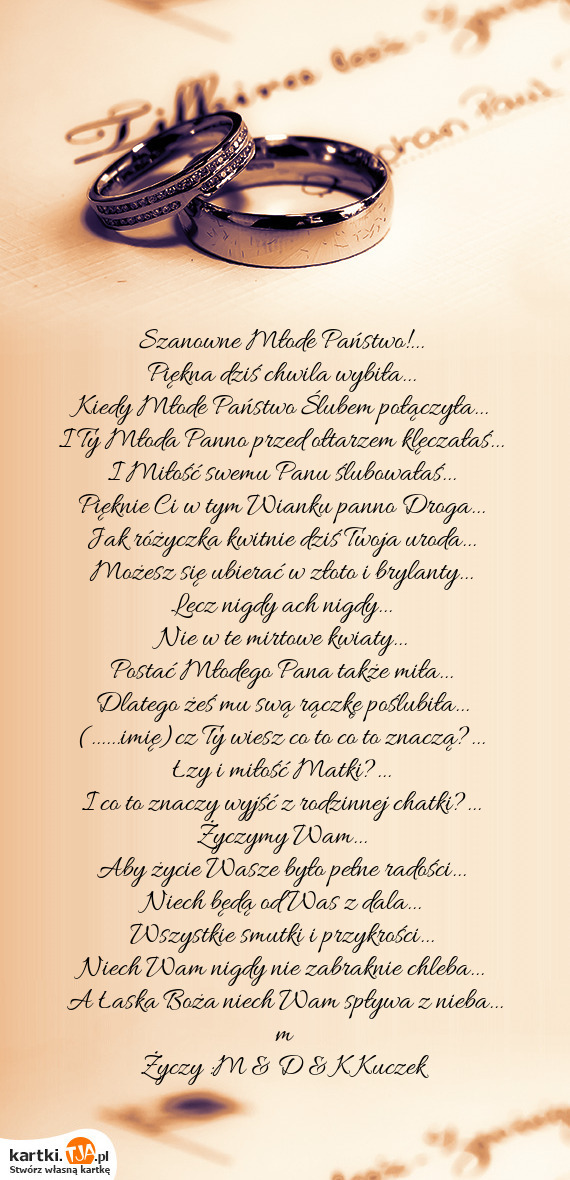 Szanowne Młode Państwo!...
Piękna dziś chwila wybiła...
Kiedy Młode Państwo Ślubem połączyła...
I Ty Młoda Panno przed ołtarzem klęczałaś...
I Miłość swemu Panu ślubowałaś...
Pięknie Ci w tym Wianku panno Droga...
Jak różyczka kwitnie dziś Twoja uroda...
Możesz się ubierać w złoto i brylanty...
Lecz nigdy ach nigdy...
Nie w te mirtowe kwiaty...
Postać Młodego Pana także miła...
Dlatego żeś mu swą rączkę poślubiła...
(......imię) cz Ty wiesz co to co to znaczą?...
Łzy i miłość Matki?...
I co to znaczy wyjść z rodzinnej chatki?...
Życzymy Wam...
Aby życie Wasze było pełne radości...
Niech będą od Was z dala...
Wszystkie smutki i przykrości...
Niech Wam nigdy nie zabraknie chleba...
A Łaska Boża niech Wam spływa z nieba...
m
Życzy :M & D & K Kuczek
kartki.TJA.pl
Stwórz własną kartkę